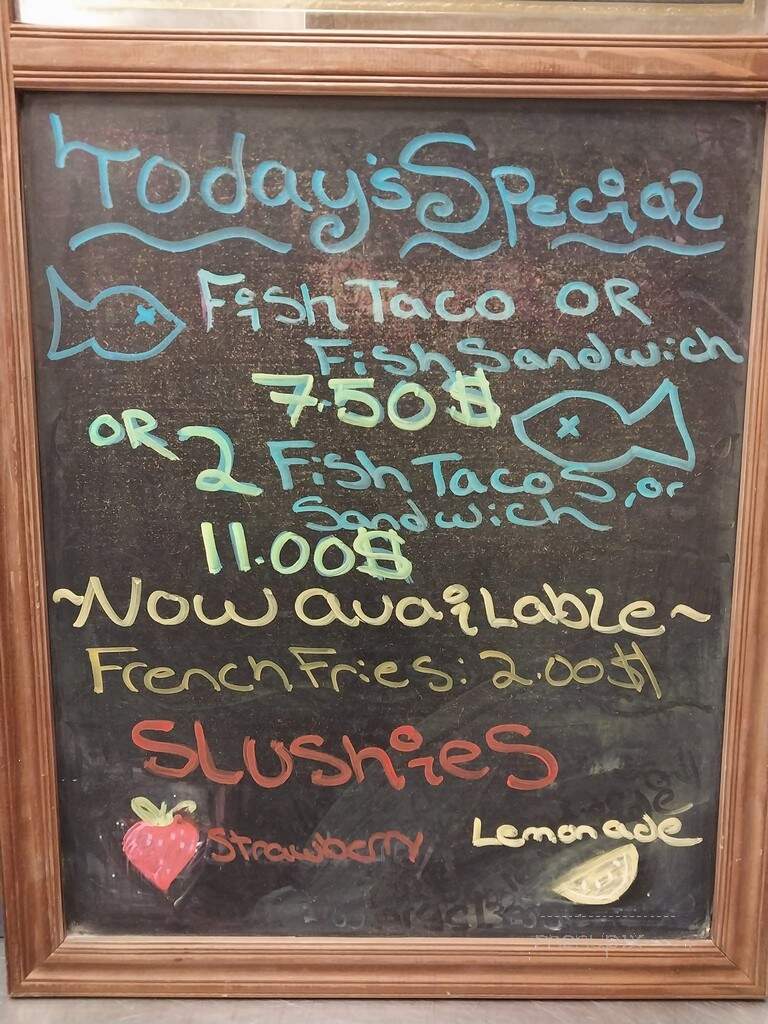 Today's Special
Fish Taco OR
Fish Sandwich
7.50$
OR 2 Fish Tacos, or
Sandwich
11.00$
~Now available~
French Fries: 2.00$
Slushies
Strawberry
Lemonade